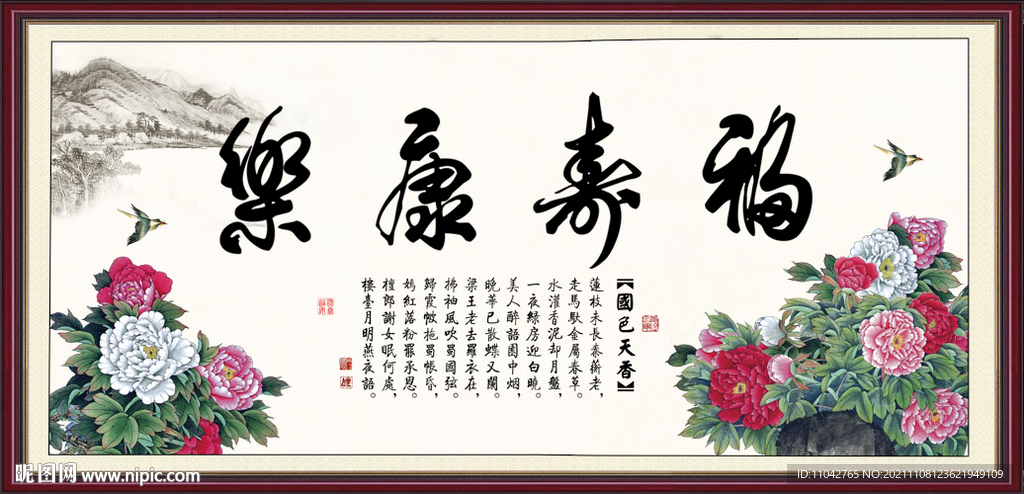 福壽康樂
【國色天香】
蓮枝未長秦蘅老，
走馬馱金劚春草。
水灌香泥却月盤，
一夜綠房迎白曉。
美人醉語園中烟，
晚華已散蝶又闌。
梁王老去羅衣在，
拂袖風吹蜀國弦。
歸霞帔拖蜀帳昏，
嫣紅落粉罷承恩。
檀郎謝女眠何處，
樓臺月明燕夜語。
昵图网 www.nipic.com
ID:11042765 NO:20211108123621949109